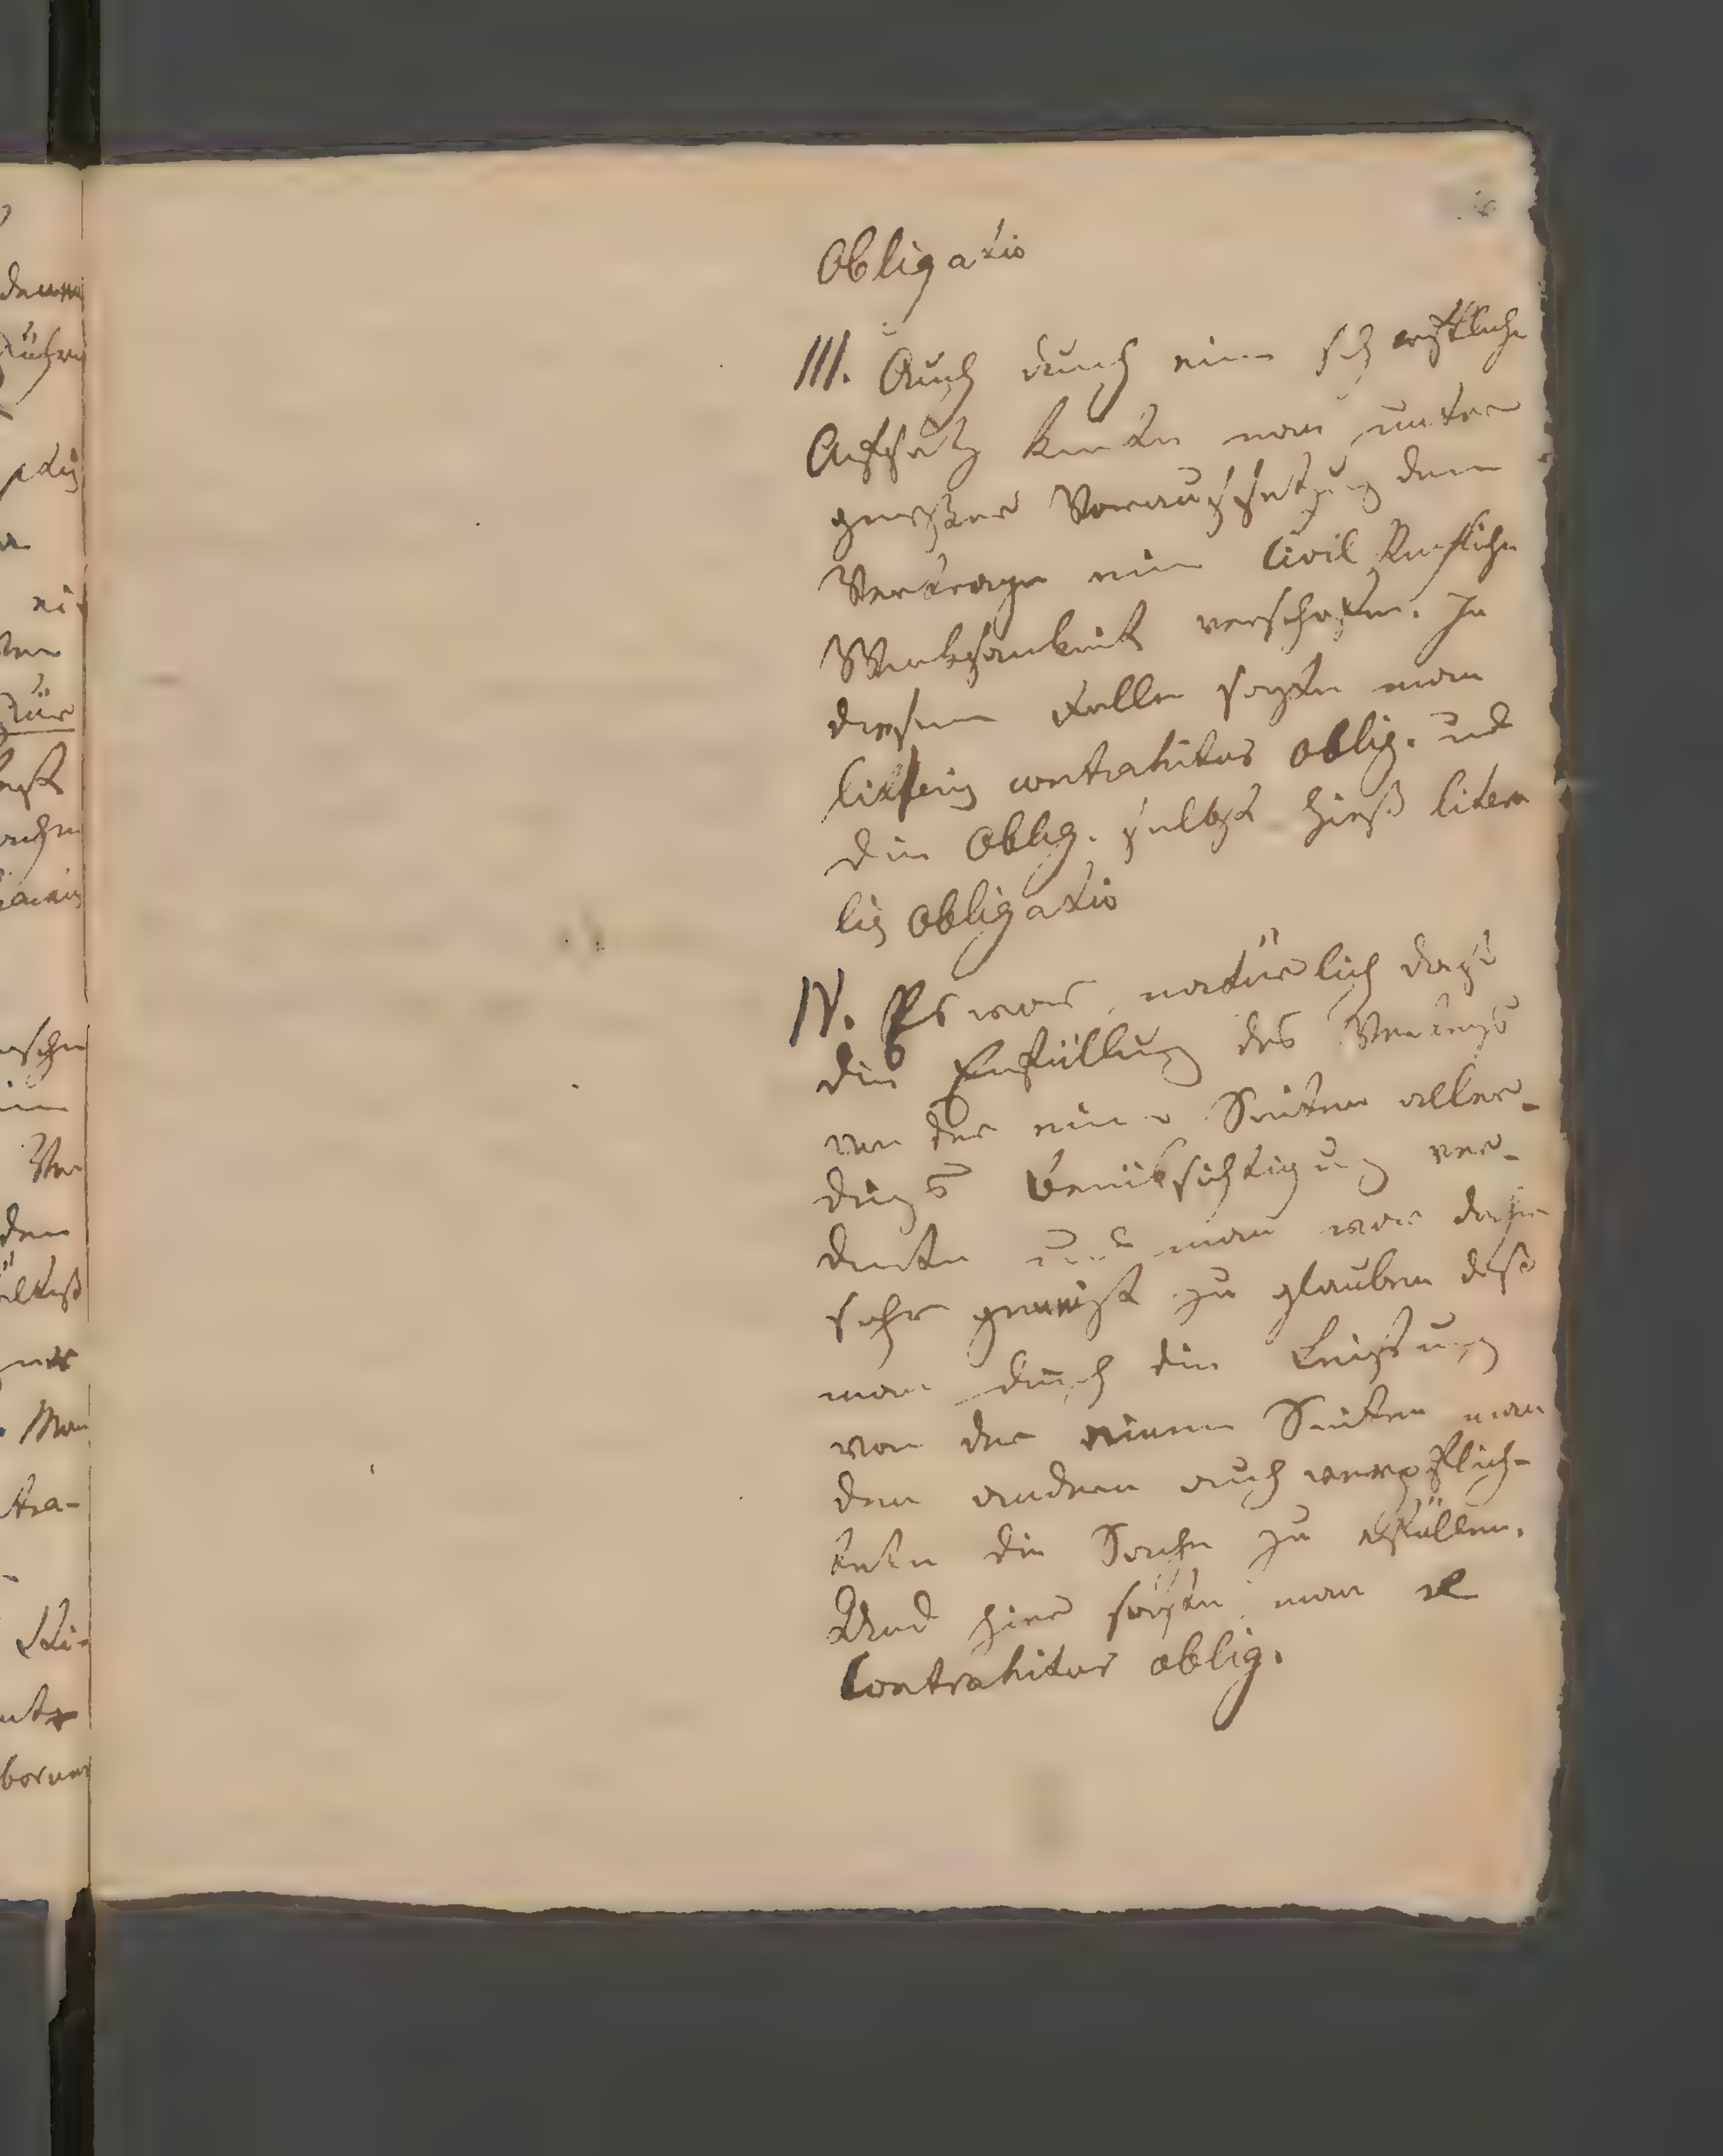 Obligatio
III. Auch durch eine schriftliche
Aufsatz konnte man unter
gewisser Voraussetzung dem
Vertrage eine Civil Rechtliche
Wirksamkeit verschafen. In
diesem Falle sagte man
literis contrahitur oblig. und
die Oblig. selbst hieß litera
lis obligatio
IV. Es war natürlich daß
die Erfüllung des Vertrags
von der einen Seiten aller-
dings Berüksichtigung ver-
diente und man war daher
sehr geneigt zu glauben daß
man durch die Leistung
von der einen Seiten man
den andern auch verpflich-
tete die Sache zu erfüllen.
Und hier sagte man re
Contrahitur oblig.